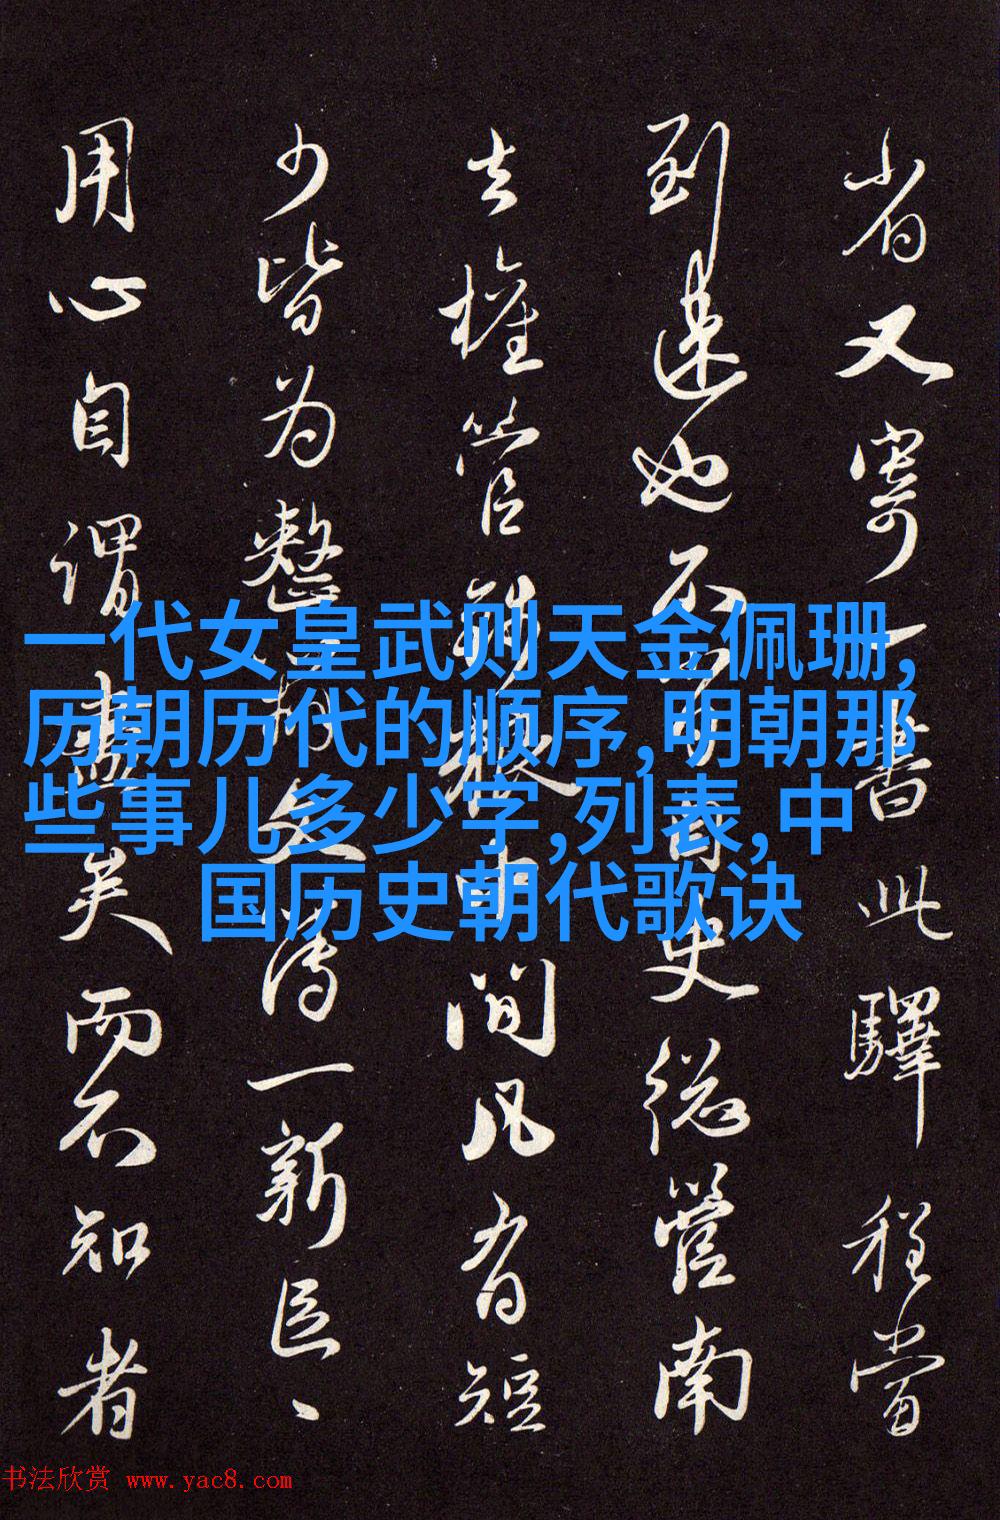 省又寄一書此驛程當
到速也不史總管南
去權管糧中間凡有短
少皆為整文簿一新區、
用心自謂盡矣而不知者
一代女皇武则天金佩珊,
历朝历代的顺序,明朝那
些事儿多少字,列表,中
国历史朝代歌诀
书法欣赏 www.yac8.com